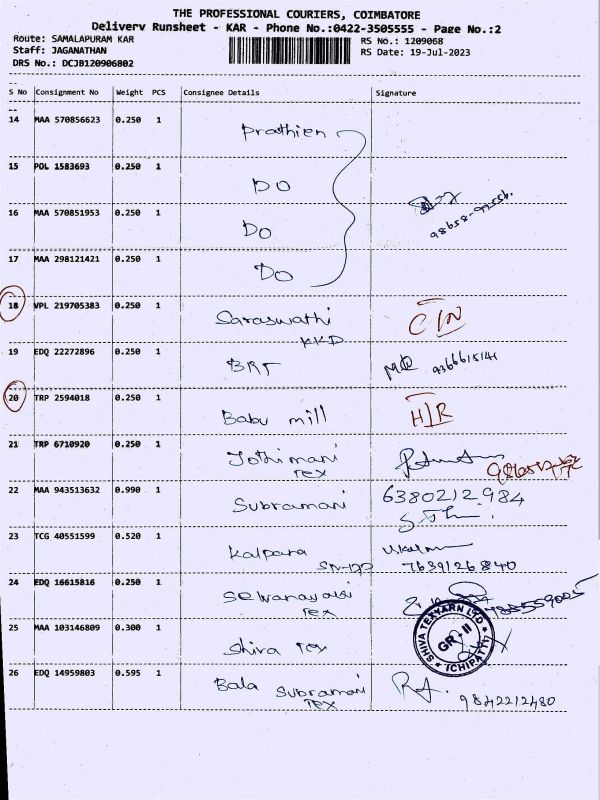 THE PROFESSIONAL COURIERS, COIMBATORE
Delivery Runsheet - KAR - Phone No.:0422-3505555 - Page No.:2
Route: SAMALAPURAM KAR
RS No.: 1209068
Staff: JAGANATHAN
RS Date: 19-Jul-2023
DRS No.: DCJB120906802
S No Consignment No Weight PCS Consignee Details Signature
14 MAA 570856623 0.250 1 Prathien
15 POL 1583693 0.250 1 DO
16 MAA 570851953 0.250 1 DO
17 MAA 298121421 0.250 1 DO
18 VPL 219705383 0.250 1 Saraswathi C/N
KKD
19 EDQ 22272896 0.250 1 BRT 9366615141
20 TRP 2594018 0.250 1 Babu mill H/R
21 TRP 6710920 0.250 1 Jothimani
Tex
22 MAA 943513632 0.990 1 Subramani 6380212984
23 TCG 40551599 0.520 1 Kalpara
7639126840
24 EDQ 16615816 0.250 1
Tex
25 MAA 103146809 0.300 1 Shiva Tex SHIVA TEXYARN LTD
GR-II
ICHIPATTI
26 EDQ 14959803 0.595 1 Bala Subramani
Tex 9842212480